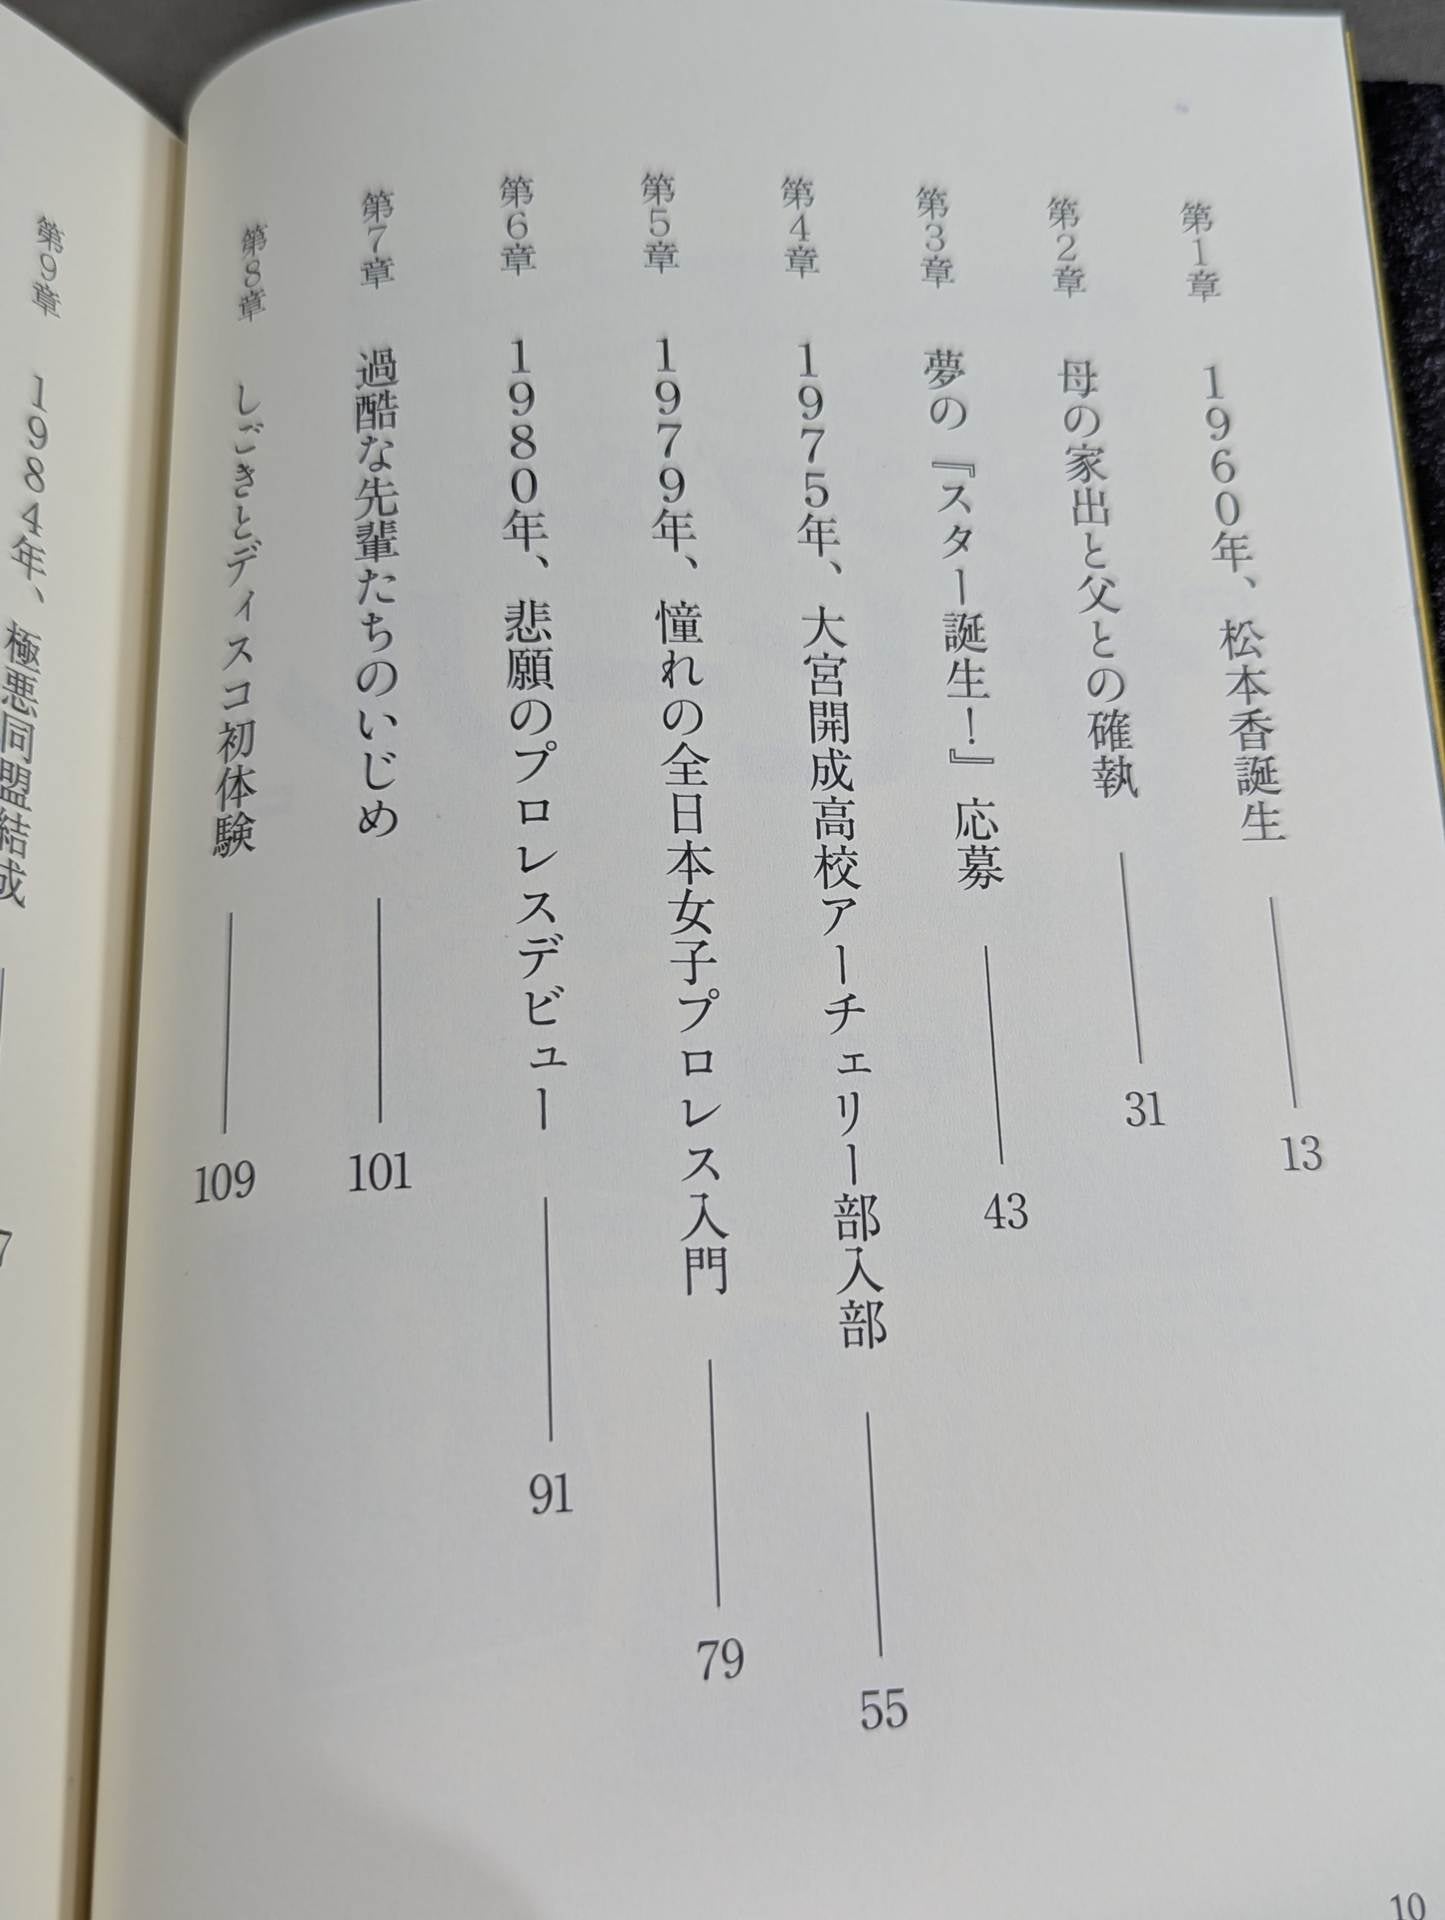 第1章　1960年、松本香誕生 13
第2章　母の家出と父との確執 31
第3章　夢の『スター誕生！』応募 43
第4章　1975年、大宮開成高校アーチェリー部入部 55
第5章　1979年、憧れの全日本女子プロレス入門 79
第6章　1980年、悲願のプロレスデビュー 91
第7章　過酷な先輩たちのいじめ 101
第8章　しごきとディスコ初体験 109
第9章　1984年、極悪同盟結成
10